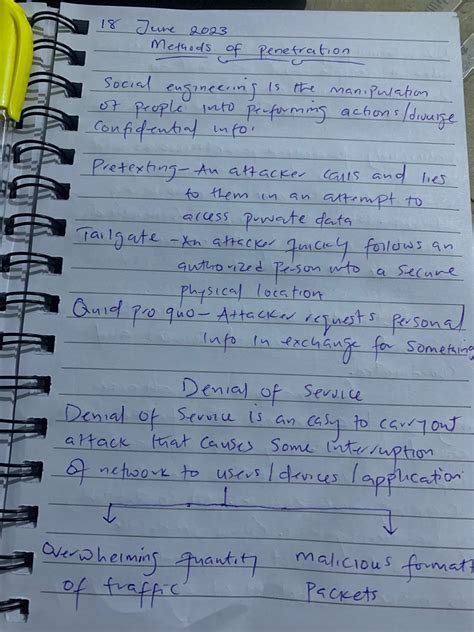 18 June 2023
Methods of Penetration
Social engineering is the manipulation
of people into performing actions/divulge
confidential info.
Pretexting - An attacker calls and lies
to them in an attempt to
access private data
Tailgate - An attacker quickly follows an
authorized person into a secure
physical location
Quid pro quo - Attacker requests personal
info in exchange for something
Denial of Service
Denial of Service is an easy to carry out
attack that causes some interruption
of network to users/devices/application
Overwhelming quantity
of traffic
malicious format
packets